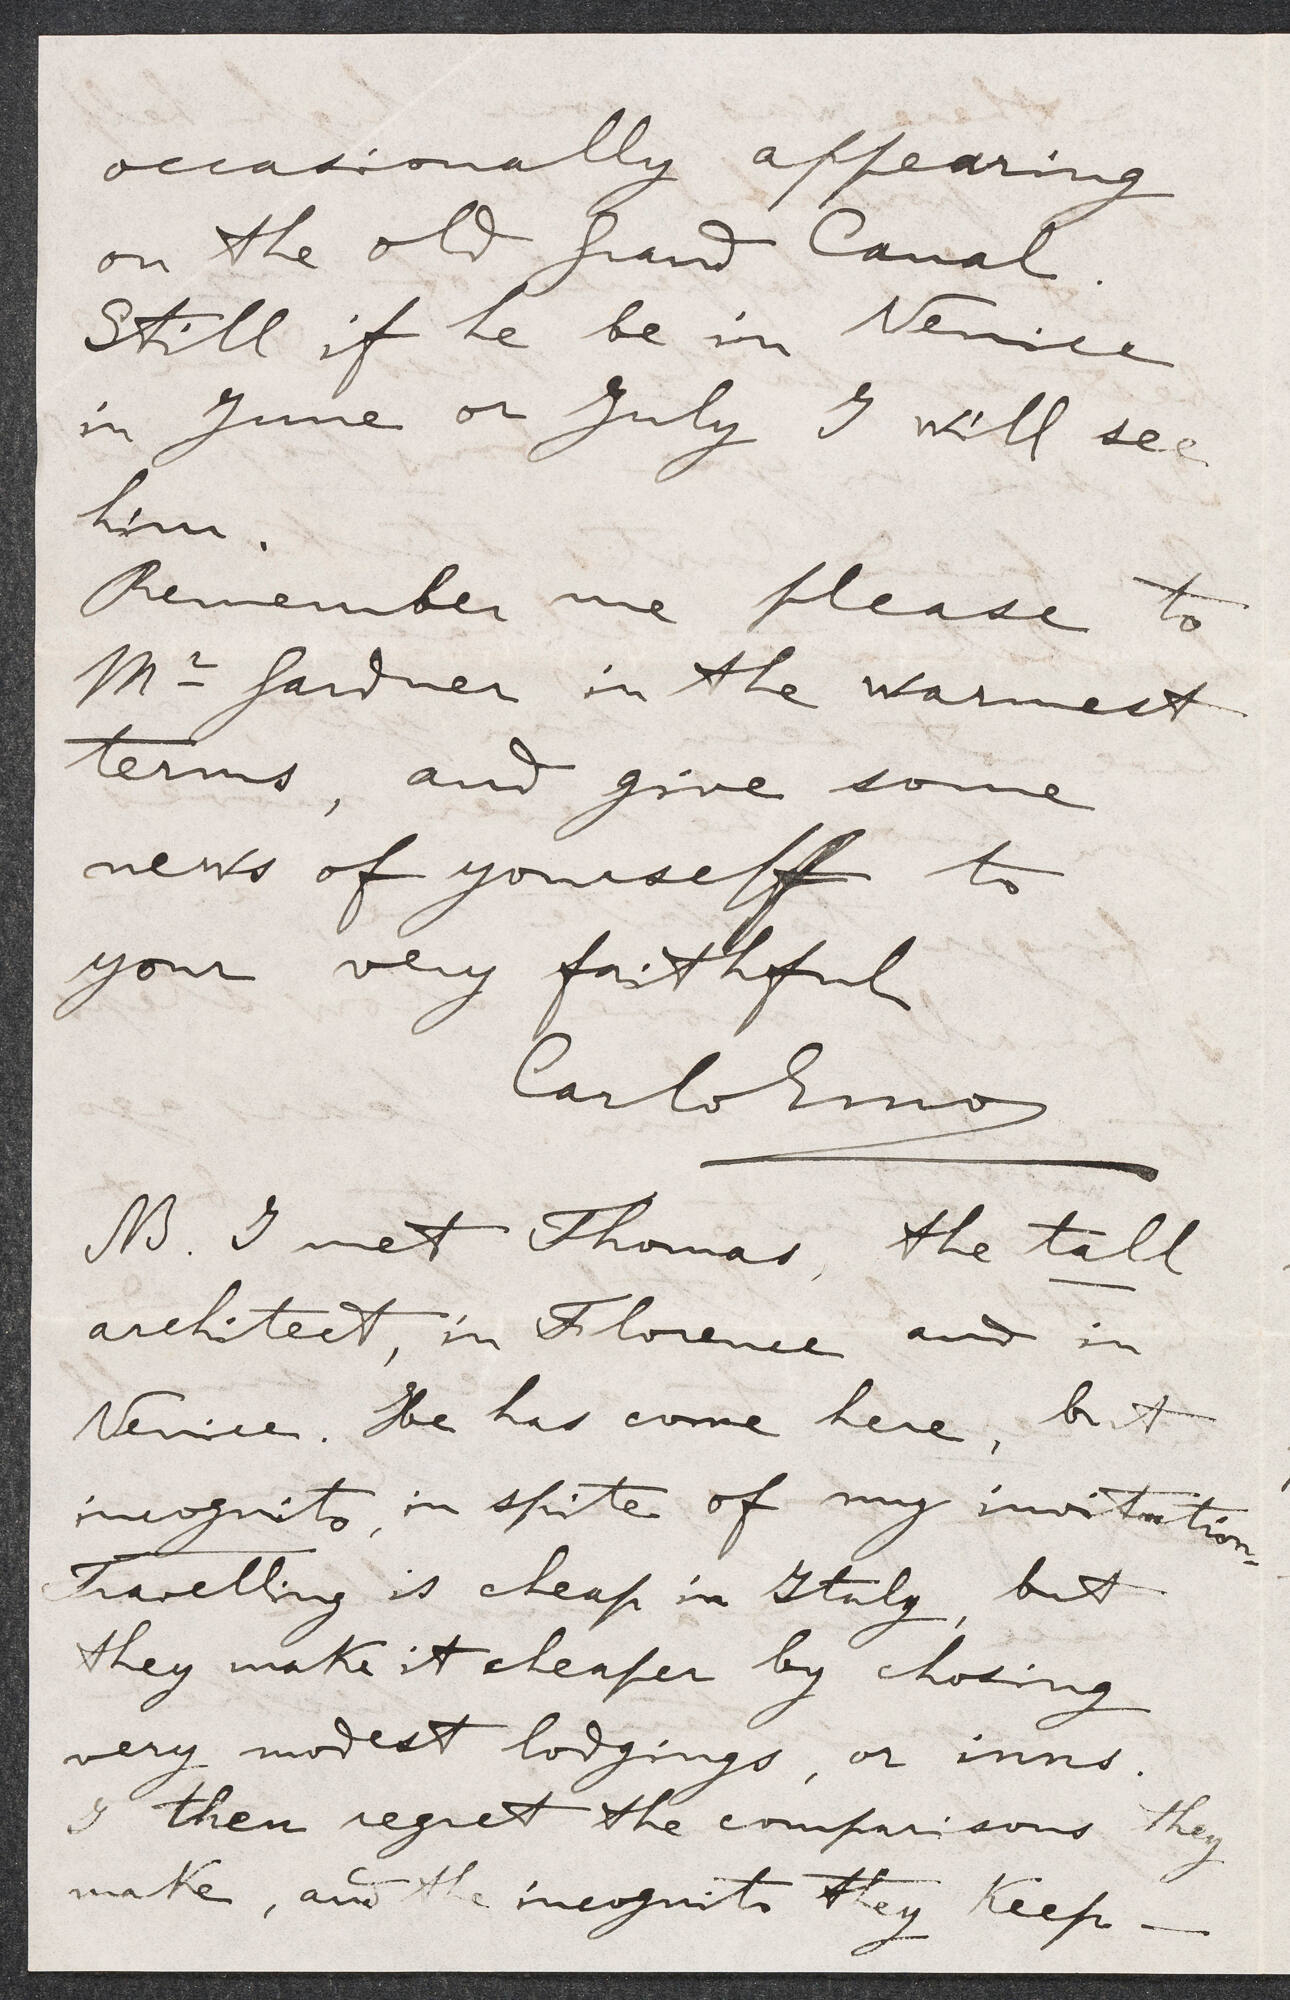 occasionally appearing
on the old Grand Canal.
Still if he be in Venice
in June or July I will see
him.
Remember me please to
Mr Gardner in the warmest
terms, and give some
news of yourself to
your very faithful
Carlo Emo
NB. I met Thomas, the tall
architect, in Florence and in
Venice. He has come here, but
incognito, in spite of my invitation-
Travelling is cheap in Italy, but
they make it cheaper by chosing
very modest lodgings, or inns.
I then regret the comparisons they
make, and the incognito they keep —